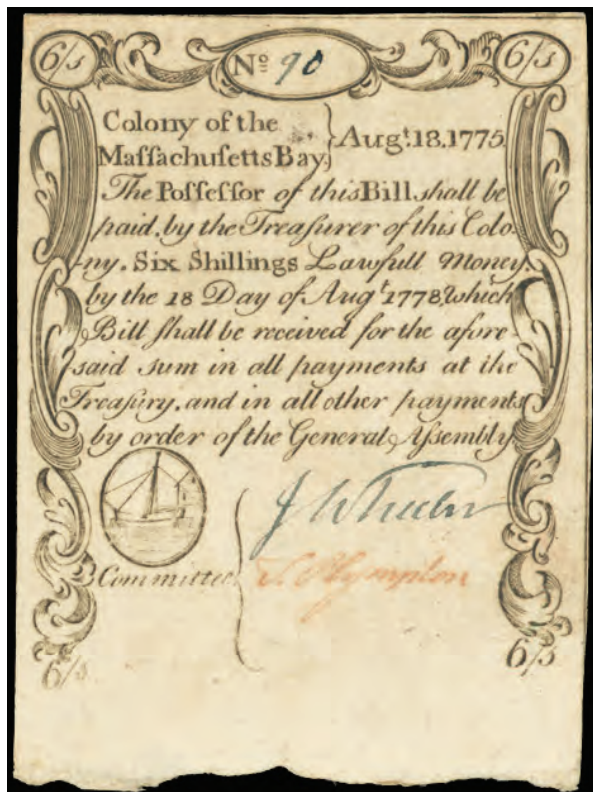 6/s Nº 90 6/s
Colony of the
Maſsachuſetts Bay } Augt. 18. 1775
The Poſseſsor of this Bill shall be
paid, by the Treaſurer of this Colo-
ny. Six Shillings Lawfull Money.
by the 18 Day of Augt. 1778, which
Bill ſhall be received for the afore-
said sum in all payments at the
Treaſury, and in all other payments
by order of the General Aſsembly
J Wheeler
Committee } S. Plympton
6/s 6/s